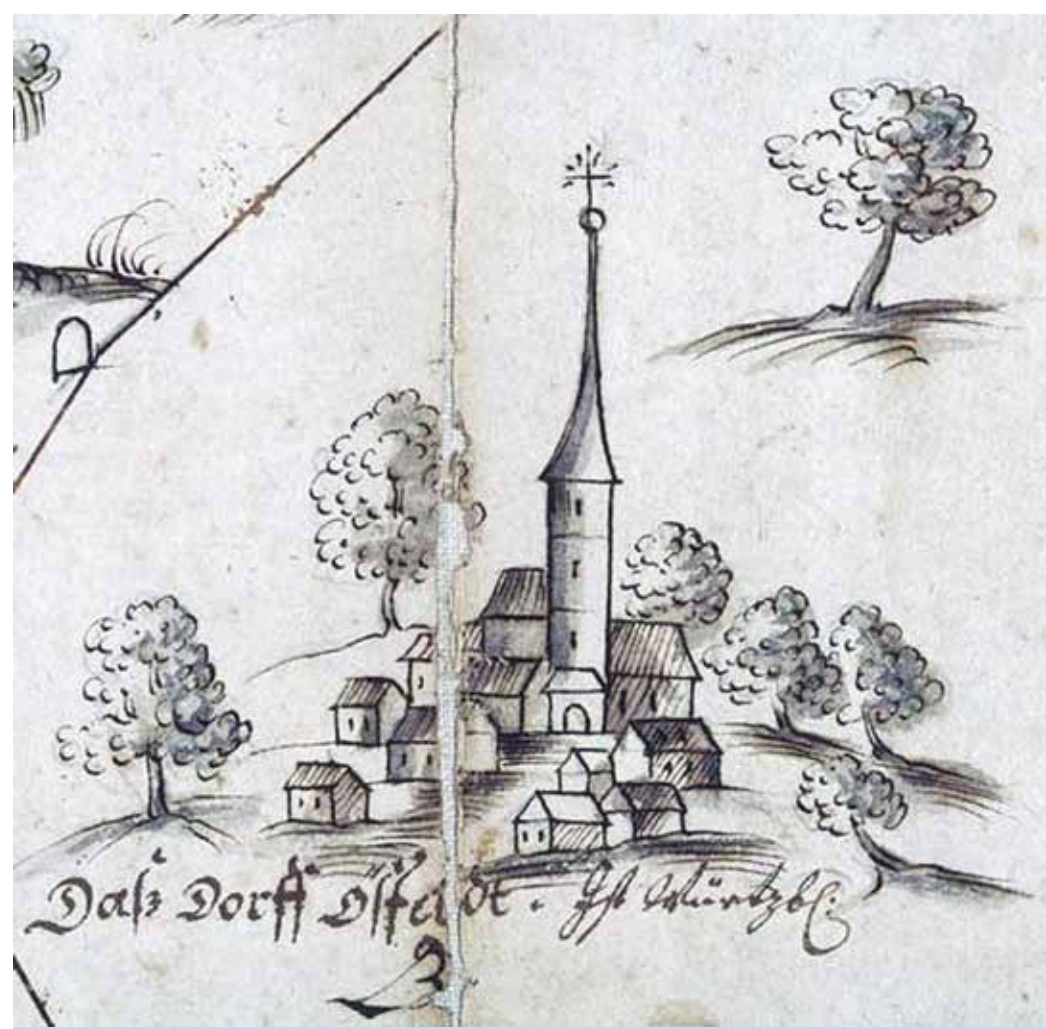 D
Daß Dorff Osfeldt. Ist Würtzbl: